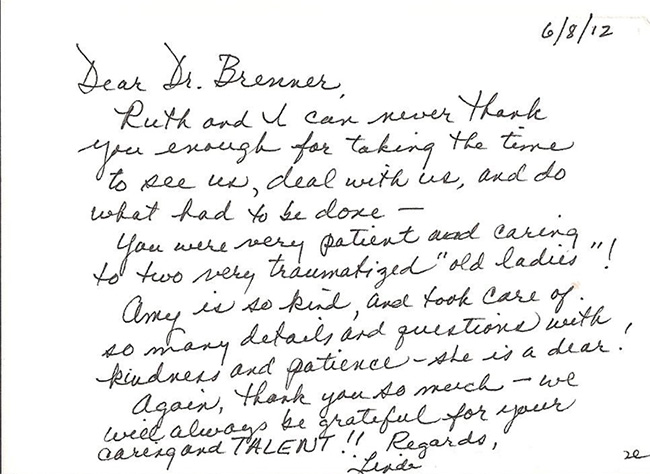 6/8/12
Dear Dr. Brenner,
Ruth and I can never thank
you enough for taking the time
to see us, deal with us, and do
what had to be done —
You were very patient and caring
to two very traumatized "old ladies"!
Amy is so kind, and took care of
so many details and questions with
kindness and patience - she is a dear!
Again, thank you so much - we
will always be grateful for your
caring and TALENT!! Regards,
Linda